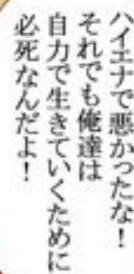 ハイエナで悪かったな！
それでも俺達は
自力で生きていくために
必死なんだよ！